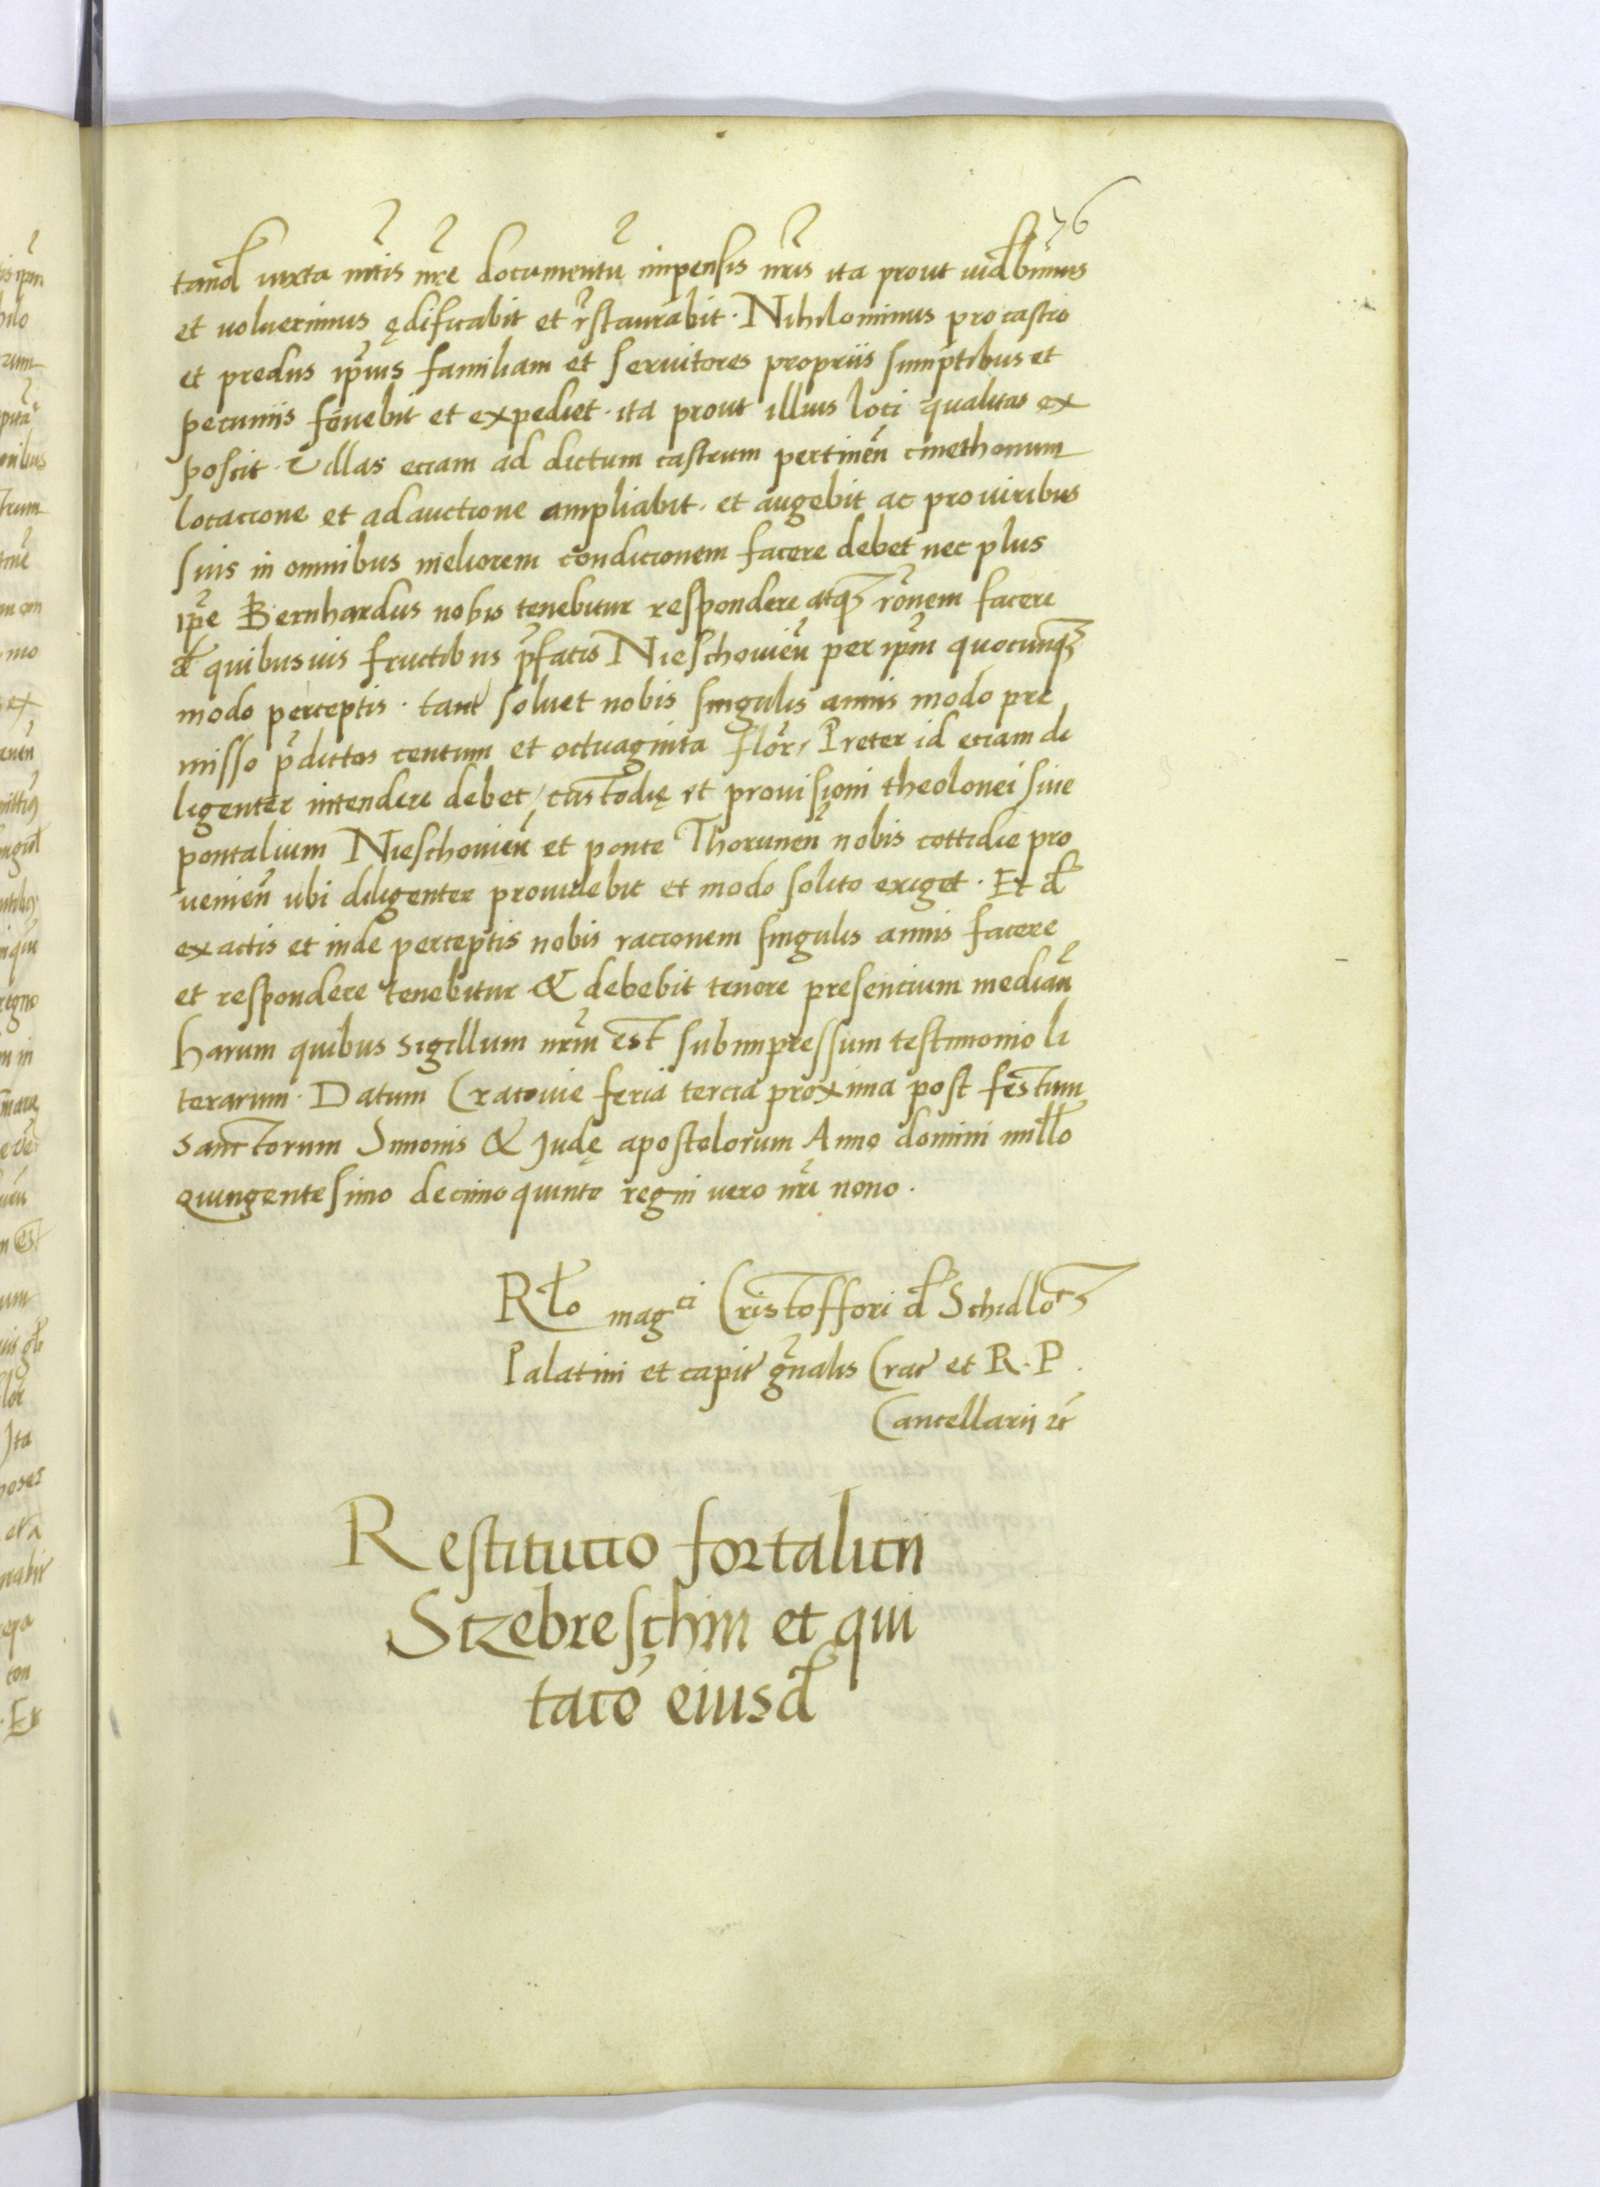 76
tand iuxta mtis nre documentu impensis nris ita prout uidbimus
et uoluerimus ędificabit et rstaurabit · Nihilominus pro castro
et prediis ipius familiam et seruitores propriis sumptibus et
pecuniis fouebit et expediet · ita prout illius loci qualitas ex
poscit · Villas eciam ad dictum castrum pertinen cmethonum
locacione et adauctione ampliabit · et augebit ac pro uiribus
suis in omnibus meliorem condicionem facere debet nec plus
ipe Bernhardus nobis tenebitur respondere atq ronem facere
d quibusuis fructibus pfatis Nieschouien per ipm quocunq
modo perceptis · tant soluet nobis singulis annis modo pre
misso pdictos centum et octuaginta flor / Preter id eciam di
ligenter intendere debet / custodię et prouisioni theolonei siue
pontalium Nieschouien et ponte Thorunen nobis cottidie pro
uenien ubi diligenter prouidebit et modo solito exiget · Et d
exactis et inde perceptis nobis racionem singulis annis facere
et respondere tenebitur & debebit tenore presencium median
harum quibus sigillum nrm est subimpressum testimonio li
terarum · Datum Cracouie feria tercia proxima post festum
sanctorum Simonis & Judę apostolorum Anno domini millo
quingentesimo decimo quinto regni uero nri nono ·
Rlo magci Cristoffori d Schidlo
Palatini et capit gnalis Crac et R · P ·
Cancellarii zc
Restitucio fortalicii
Sczebreschin et qui
tacio eiusd